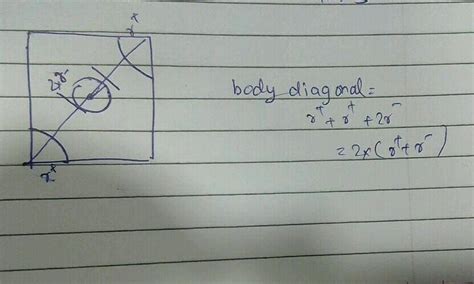 r⁺
2r⁻
r⁺
body diagonal =
r⁺ + r⁺ + 2r⁻
= 2×(r⁺+r⁻)